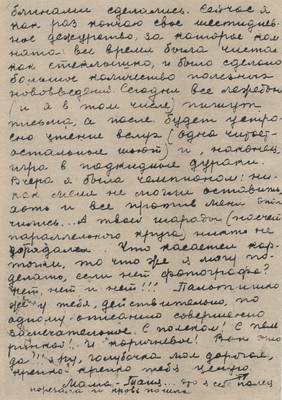 блинами сделались. Сейчас я
как раз кончаю свое шестиднев-
ное дежурство, за которое ком-
ната все время была чистая
как стеклышко, и было сделано
большое количество полезных
нововведений. Сегодня все лежебоки
(и я в том числе) пишут
письма, а после будет устро-
ено чтение вслух (одна читает-
остальные шьют) и, наконец,
игра в подкидные дураки.
Вчера я была чемпионом: ни-
как меня не могли оставить,
хоть и все против меня были
А твои шарады (насчет
параллельного круга) никто не
Что касается кар-
точки, то что же я могу по-
делать, если нет фотографа?
нет, нет и нет!!!
у тебя, действительно, по
одному описанию совершенно
замечательное. С поясом! С
и коричневое! Вот это
да!! Ну, голубочка моя дорогая,
крепко-крепко тебя целую.
Мама-
порезала и кровь пошла